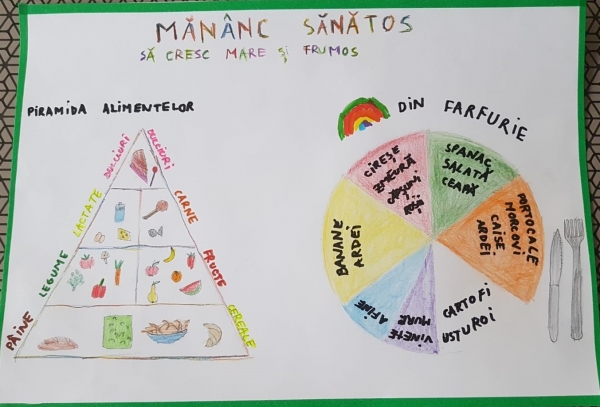 MĂNÂNC SĂNĂTOS
SĂ CRESC MARE ȘI FRUMOS
PIRAMIDA ALIMENTELOR
DULCIURI
DULCIURI
LACTATE
CARNE
LEGUME
FRUCTE
PÂINE
CEREALE
DIN FARFURIE
CIREȘE
ZMEURĂ
SPANAC
SALATĂ
CEAPĂ
PORTOCALE
MORCOVI
CAISE
ARDEI
CARTOFI
USTUROI
VINETE
MURE
AFINE
BANANE
ARDEI